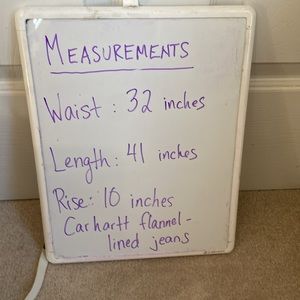 MEASUREMENTS
Waist: 32 inches
Length: 41 inches
Rise: 10 inches
Carhartt flannel-
lined jeans